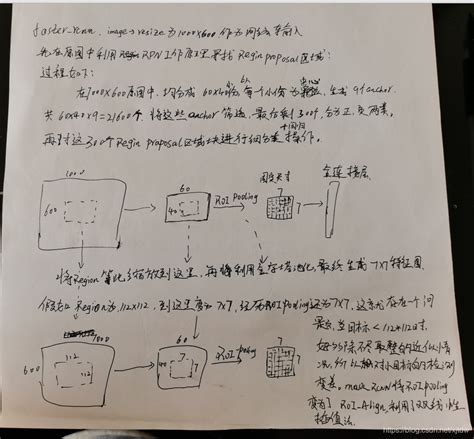 faster_rcnn, image→resize为1000×600作为网络的输入
先在原图中利用RPN工作原理来找Region proposal区域:
过程如下:
在1000×600原图中, 均分成60×40份, 每个小份为中心, 生成9个anchor.
共60×40×9=21600个, 将这些anchor筛选, 最后剩300个, 分为正、负两类.
再对这300个Region proposal区域块进行细分类+回归操作.
1000 60 固定尺寸 全连接层
600 40 ROI Pooling 7 7
将Region等比例缩放到这里, 再将利用全局最大池化, 最终生成7×7特征图.
假如Region为112×112, 到这里变为7×7, 经过ROI Pooling还为7×7, 这就存在一个问
题, 当目标<112×112时,
1000 60
600 112 112 40 7 7 ROI Pooling 7 7
如
况, 所以对小目标的检测
变差, mask RCNN将ROI pooling
变为了ROI-Align, 利用了双线性
插值法.
https://blog.csdn.net/xjtdw